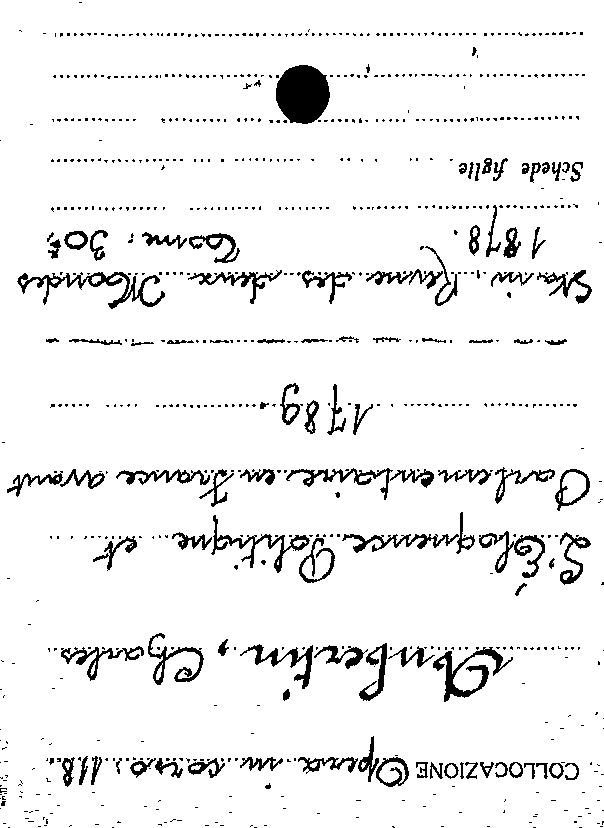 COLLOCAZIONE Opera in corso. 118.
Aubertin, Charles
L'Éloquence Politique et
Parlementaire en France avant
1789.
Sta in, Revue des deux Mondes
1878. Tome: 30º,
Schede figlie